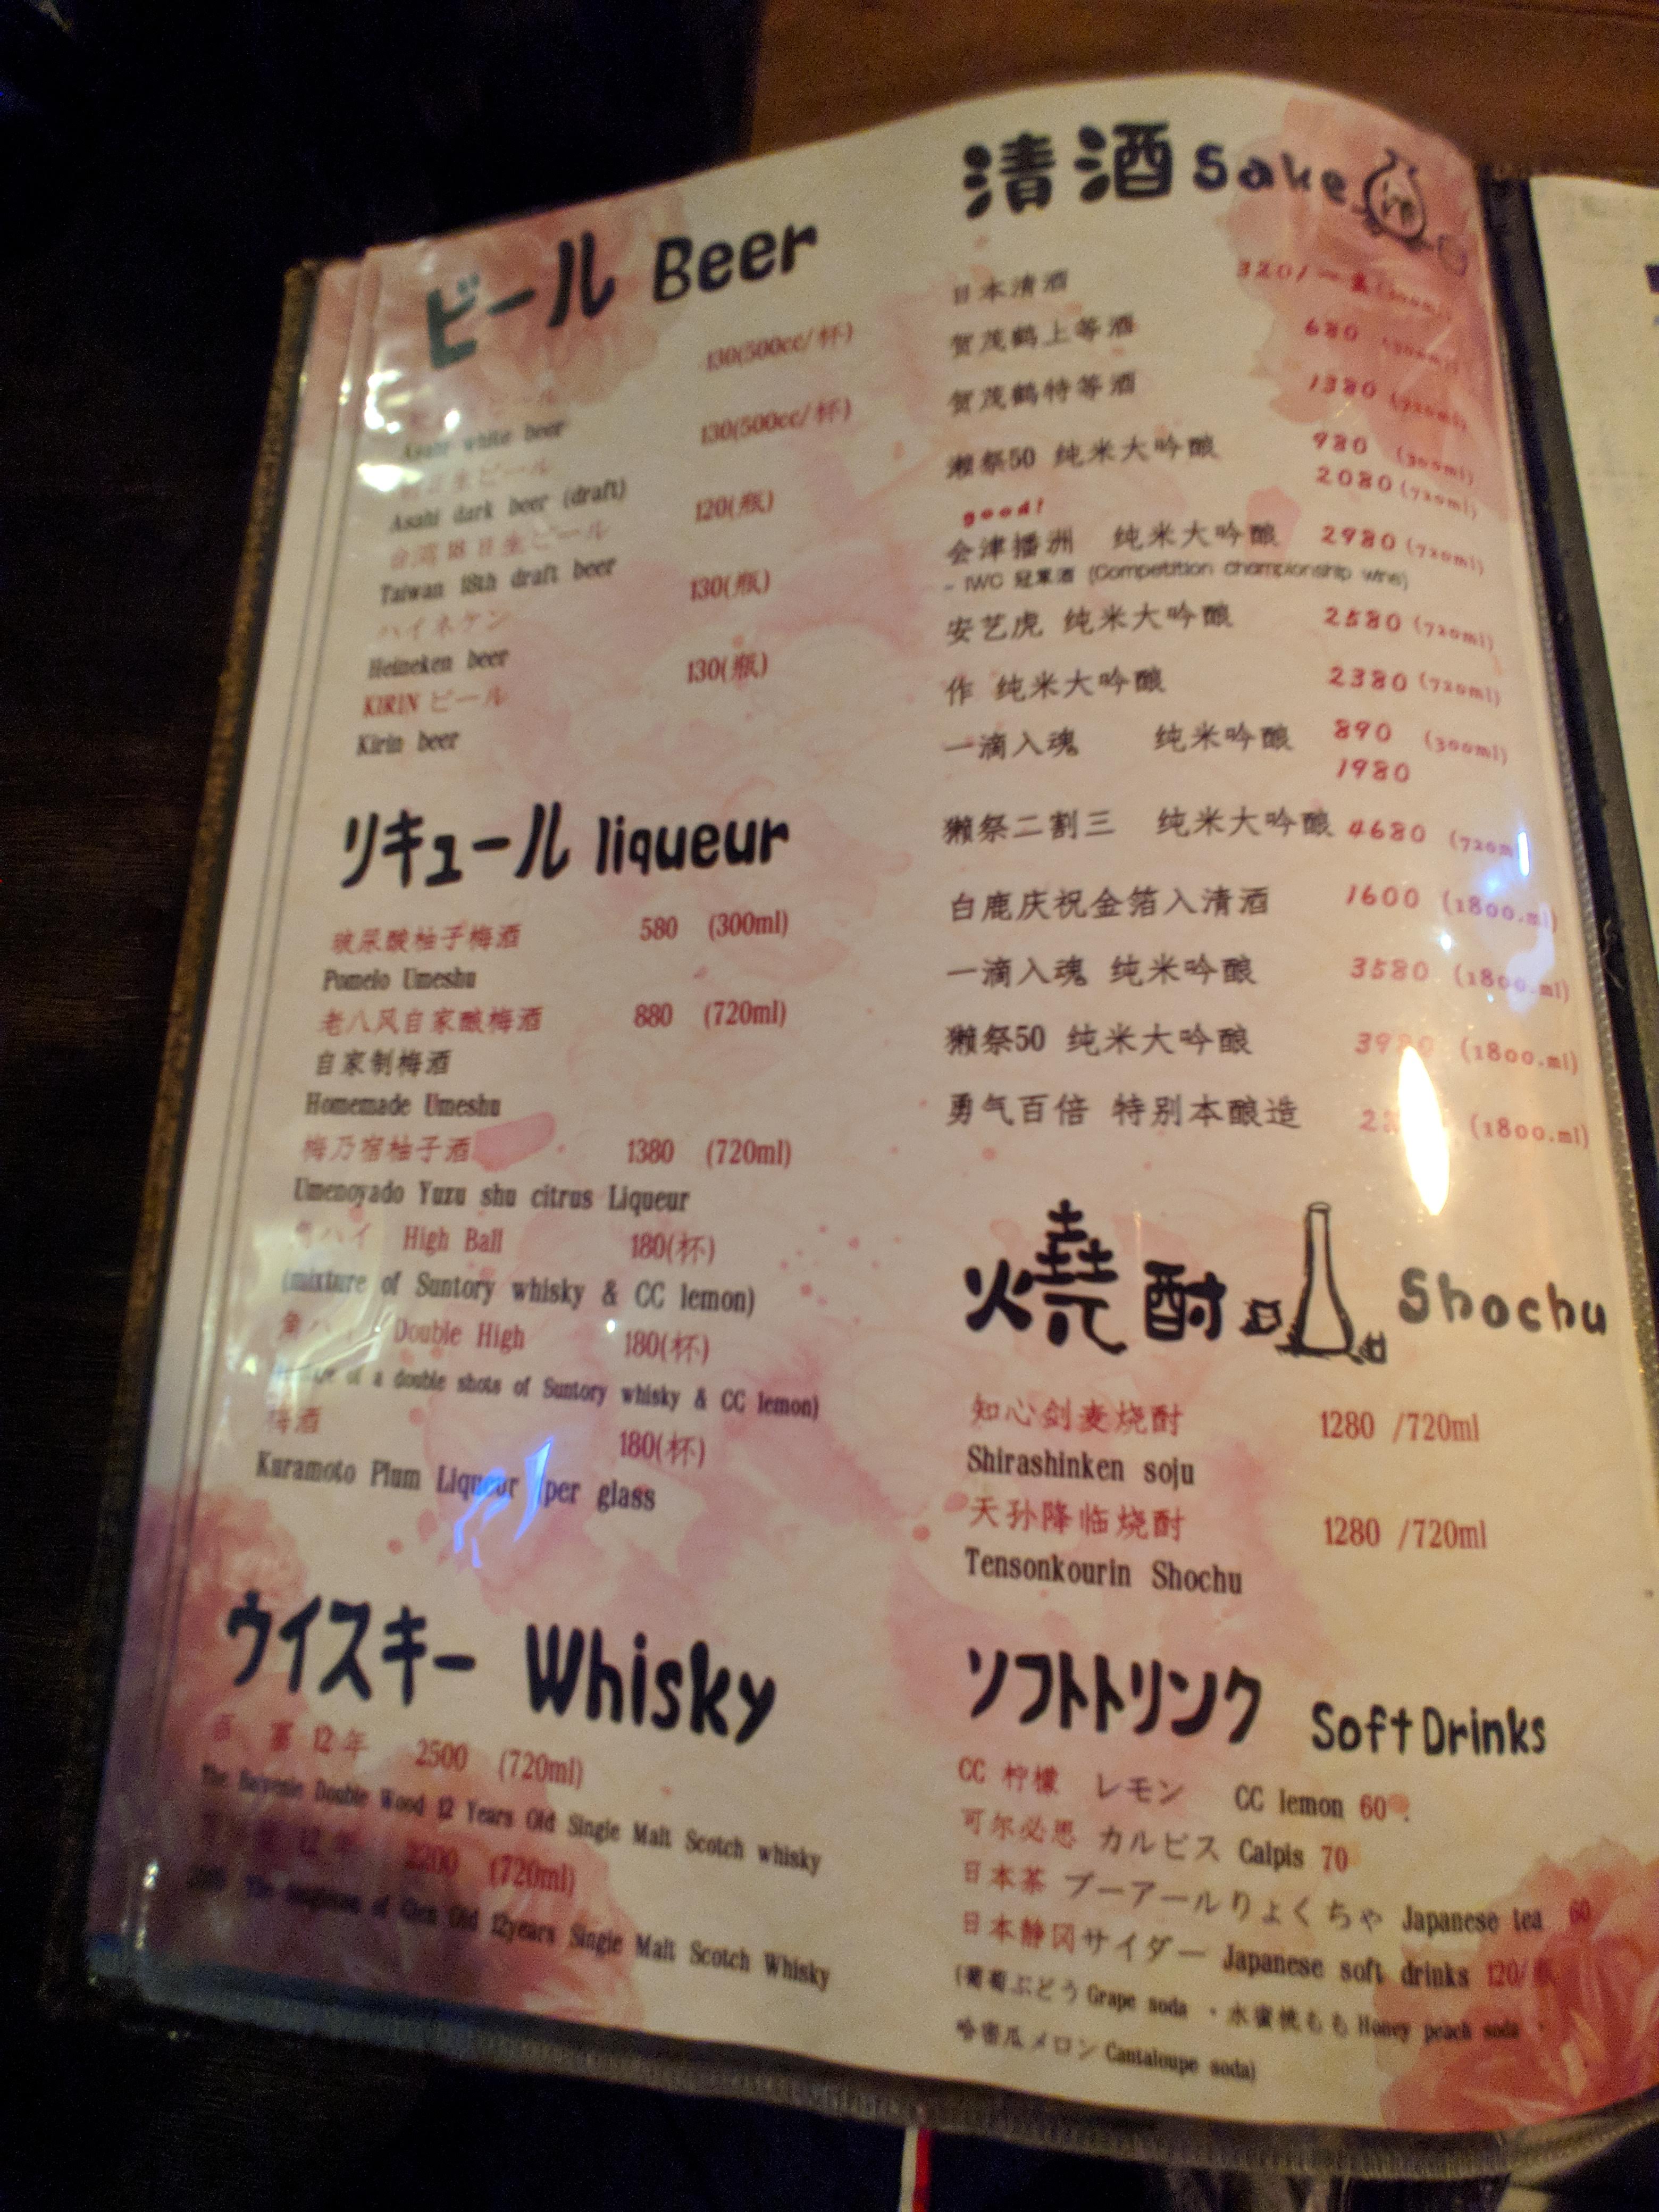 ビール Beer
130(500cc/杯)
Asahi white beer
130(500cc/杯)
生ビール
Asahi dark beer (draft)
120(瓶)
台湾18日生ビール
Taiwan 18th draft beer
130(瓶)
ハイネケン
Heineken beer
130(瓶)
KIRIN ビール
Kirin beer
リキュール liqueur
玻尿酸柚子梅酒 580 (300ml)
Pomelo Umeshu
老八风自家酿梅酒 880 (720ml)
自家制梅酒
Homemade Umeshu
梅乃宿柚子酒 1380 (720ml)
Umenoyado Yuzu shu citrus Liqueur
角ハイ High Ball 180(杯)
(mixture of Suntory whisky & CC lemon)
角ハイ Double High 180(杯)
of a double shots of Suntory whisky & CC lemon)
梅酒 180(杯)
Kuramoto Plum Liqueur /per glass
ウイスキー Whisky
12年 2500 (720ml)
The Balvenie Double Wood 12 Years Old Single Malt Scotch whisky
12年 2200 (720ml)
The singleton of Glen Old 12years Single Malt Scotch Whisky
清酒 Sake
日本清酒 320/一壶(300ml)
贺茂鹤上等酒 680
贺茂鹤特等酒 1380 (720ml)
獭祭50 纯米大吟酿 980 (300ml)
2080 (720ml)
good!
会津播洲 纯米大吟酿 2980 (720ml)
- IWC 冠軍酒 (Competition championship wine)
安艺虎 纯米大吟酿 2580 (720ml)
作 纯米大吟酿 2380 (720ml)
一滴入魂 纯米吟酿 890 (300ml)
1980
獭祭二割三 纯米大吟酿 4680 (720m
白鹿庆祝金箔入清酒 1600 (1800.ml)
一滴入魂 纯米吟酿 3580 (1800.ml)
獭祭50 纯米大吟酿 3980 (1800.ml)
勇气百倍 特别本酿造 (1800.ml)
燒酎 Shochu
知心剑麦烧酎 1280 /720ml
Shirashinken soju
天孙降临烧酎 1280 /720ml
Tensonkourin Shochu
ソフトトリンク Soft Drinks
CC 柠檬 レモン CC lemon 60
可尔必思 カルピス Calpis 70
日本茶 プーアールりょくちゃ Japanese tea 60
日本静冈サイダー Japanese soft drinks 120/瓶
(葡萄ぶどう Grape soda ・水蜜桃もも Honey peach soda ・
哈密瓜メロン Cantaloupe soda)